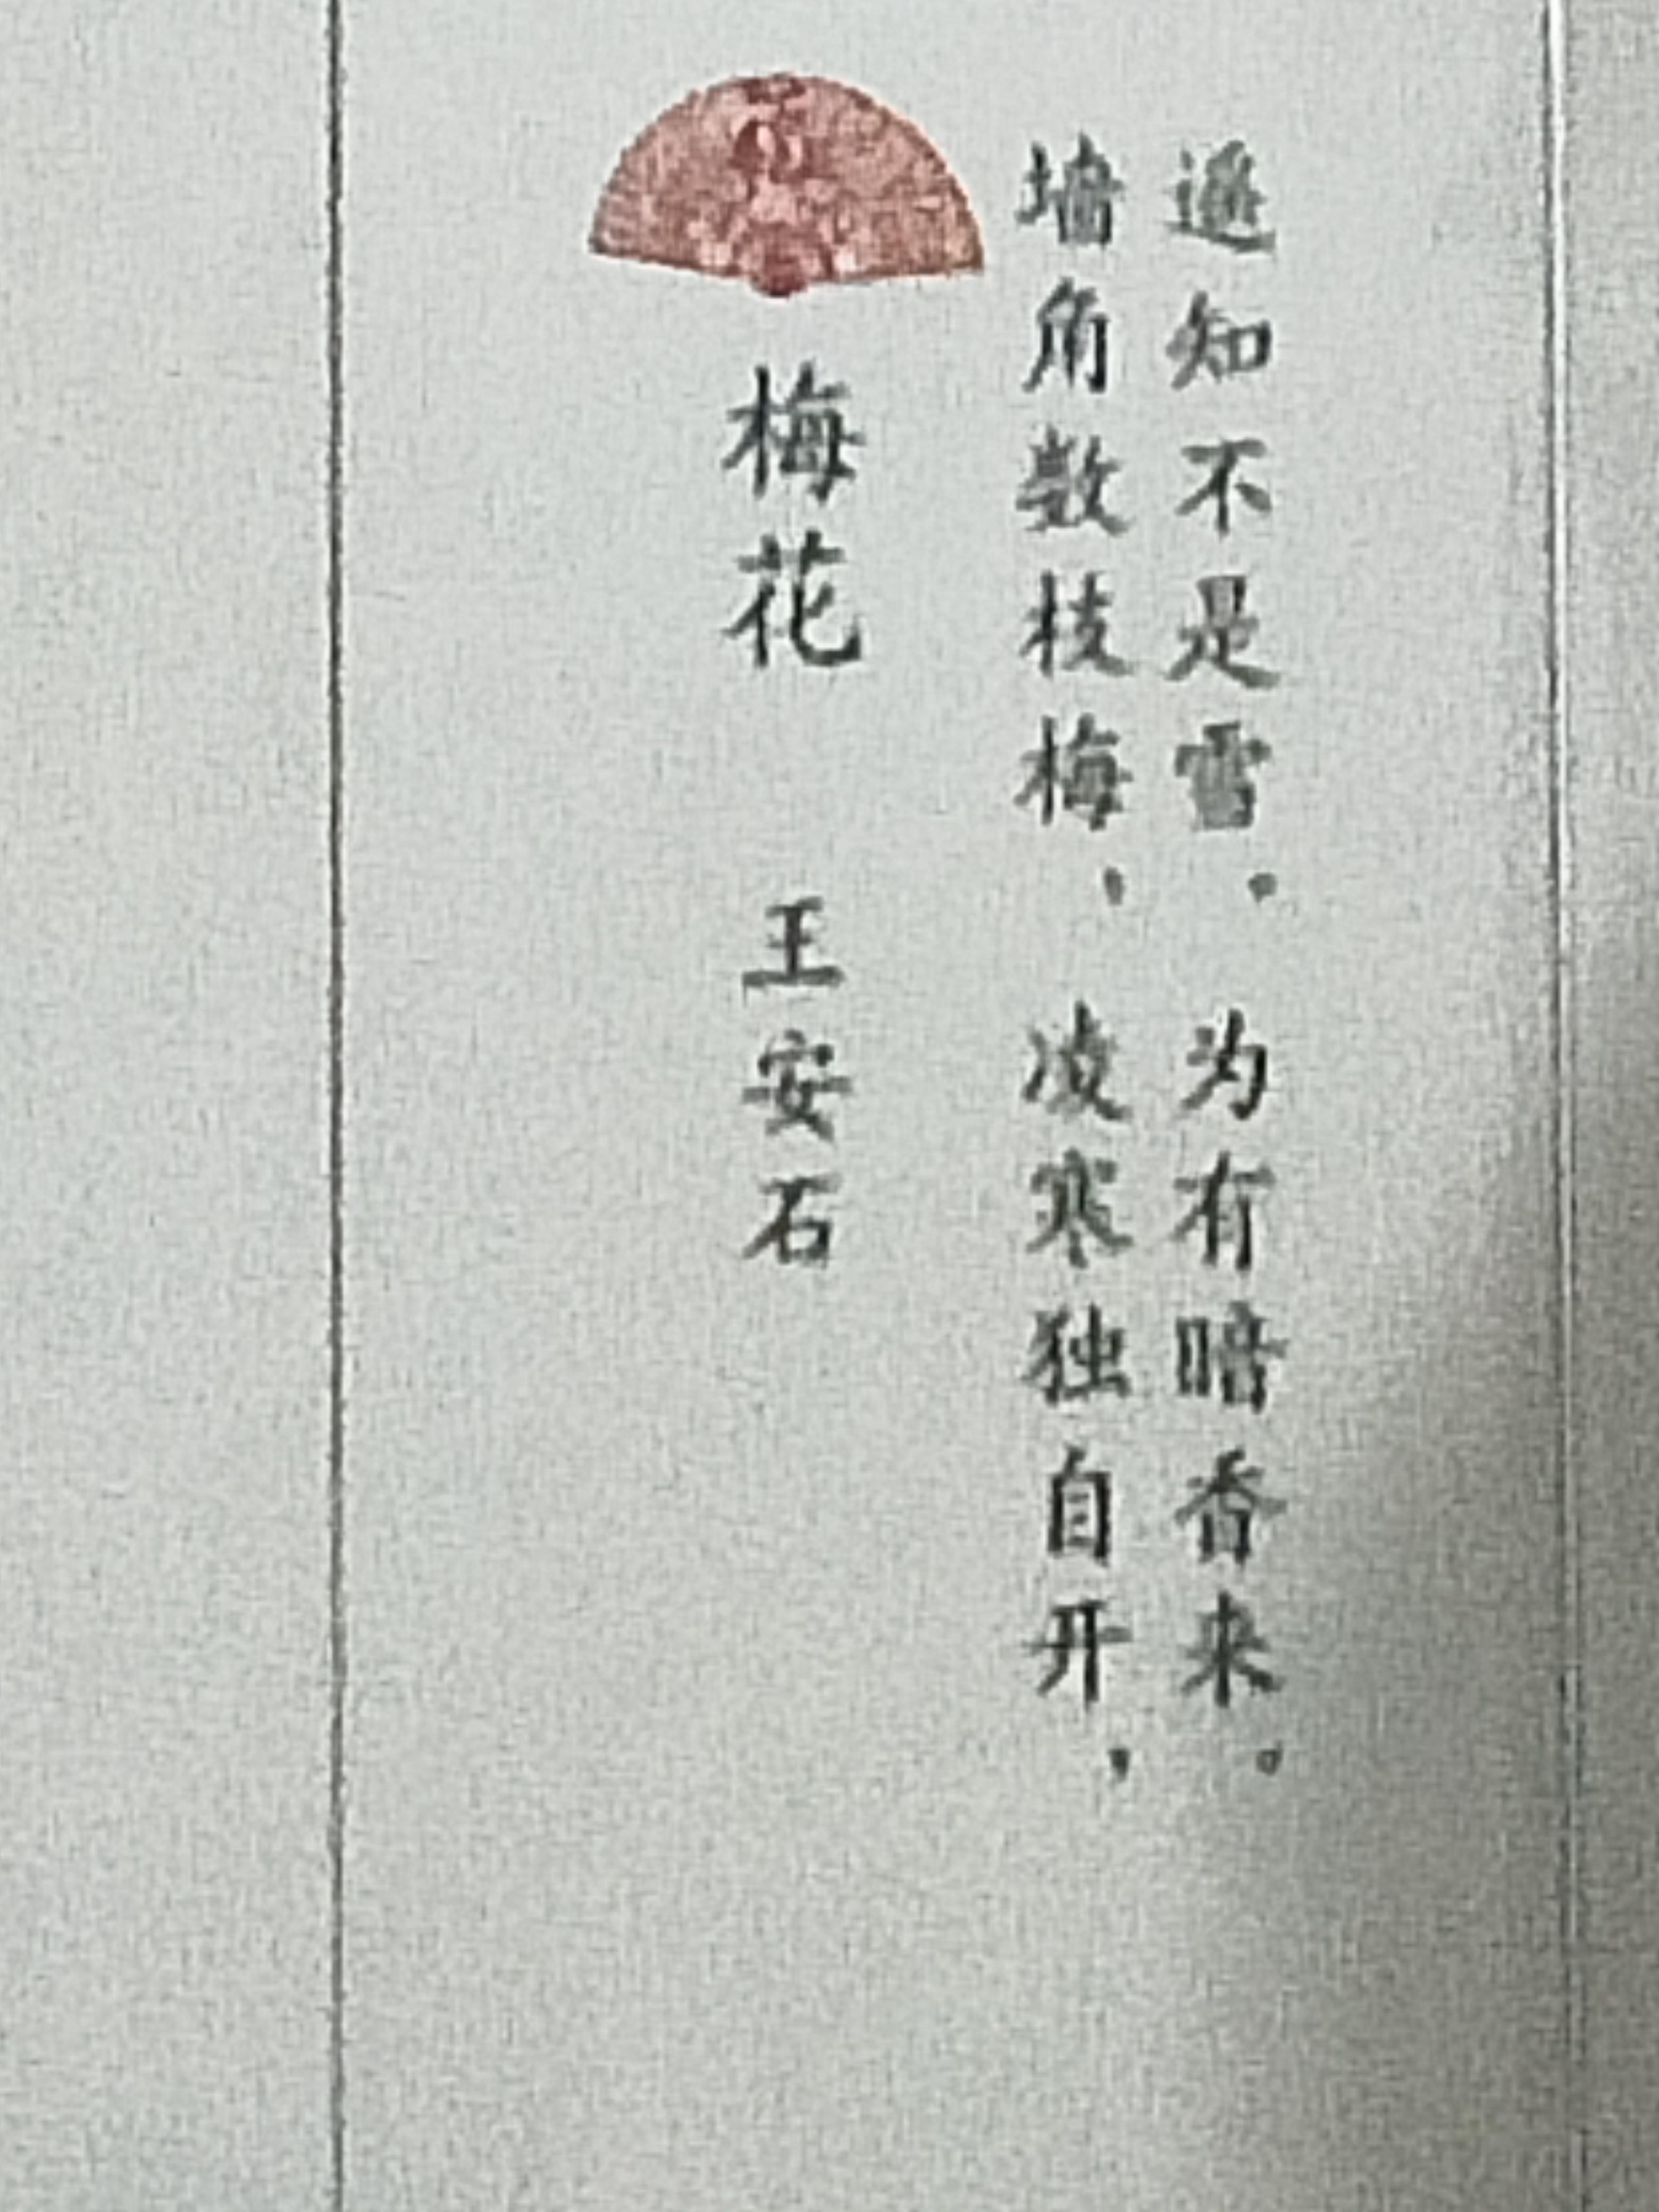 梅花 王安石
墙角数枝梅，凌寒独自开，
遥知不是雪。为有暗香来。